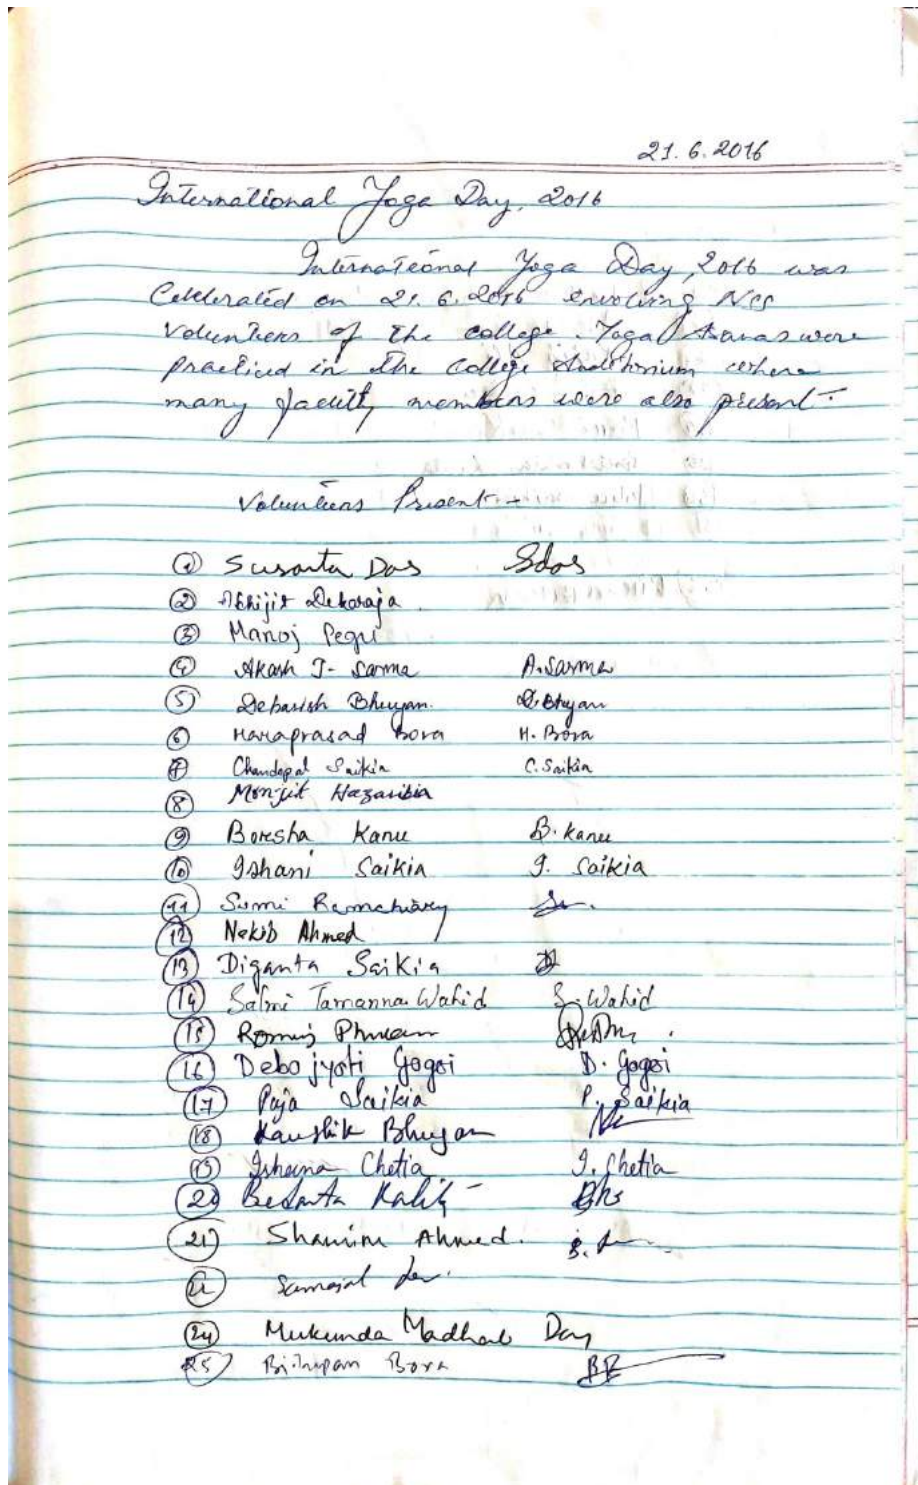 21.6.2016
International Yoga Day, 2016
International Yoga Day, 2016 was
Celebrated on 21.6.2016 envolving NCC
Volunteers of the college. Yoga Asanas were
practiced in the College Auditorium where
many faculty members were also present.
Volunteers Present -
① Susanta Das Sdas
② Abhijit Dekaraja
③ Manoj Pegu
④ Akash J. Sarma A. Sarma
⑤ Debasish Bhuyan. D. Bhuyan
⑥ Haraprasad Bora H. Bora
⑦ Saikia C. Saikia
⑧ Monjit Hazarika
⑨ Boresha Kanu B. Kanu
⑩ Ishani Saikia I. Saikia
⑪ Sumi
⑫ Nekib Ahmed
⑬ Diganta Saikia
⑭ Salmi Tamanna Wahid S. Wahid
⑮ Phukan
⑯ Debojyoti Gogoi D. Gogoi
⑰ Puja Saikia P. Saikia
⑱ Kaushik Bhuyan
⑲ Chetia I. Chetia
⑳ Kalita
㉑ Shamim Ahmed.
㉔ Mukunda Madhab Das
㉕ Bora BB